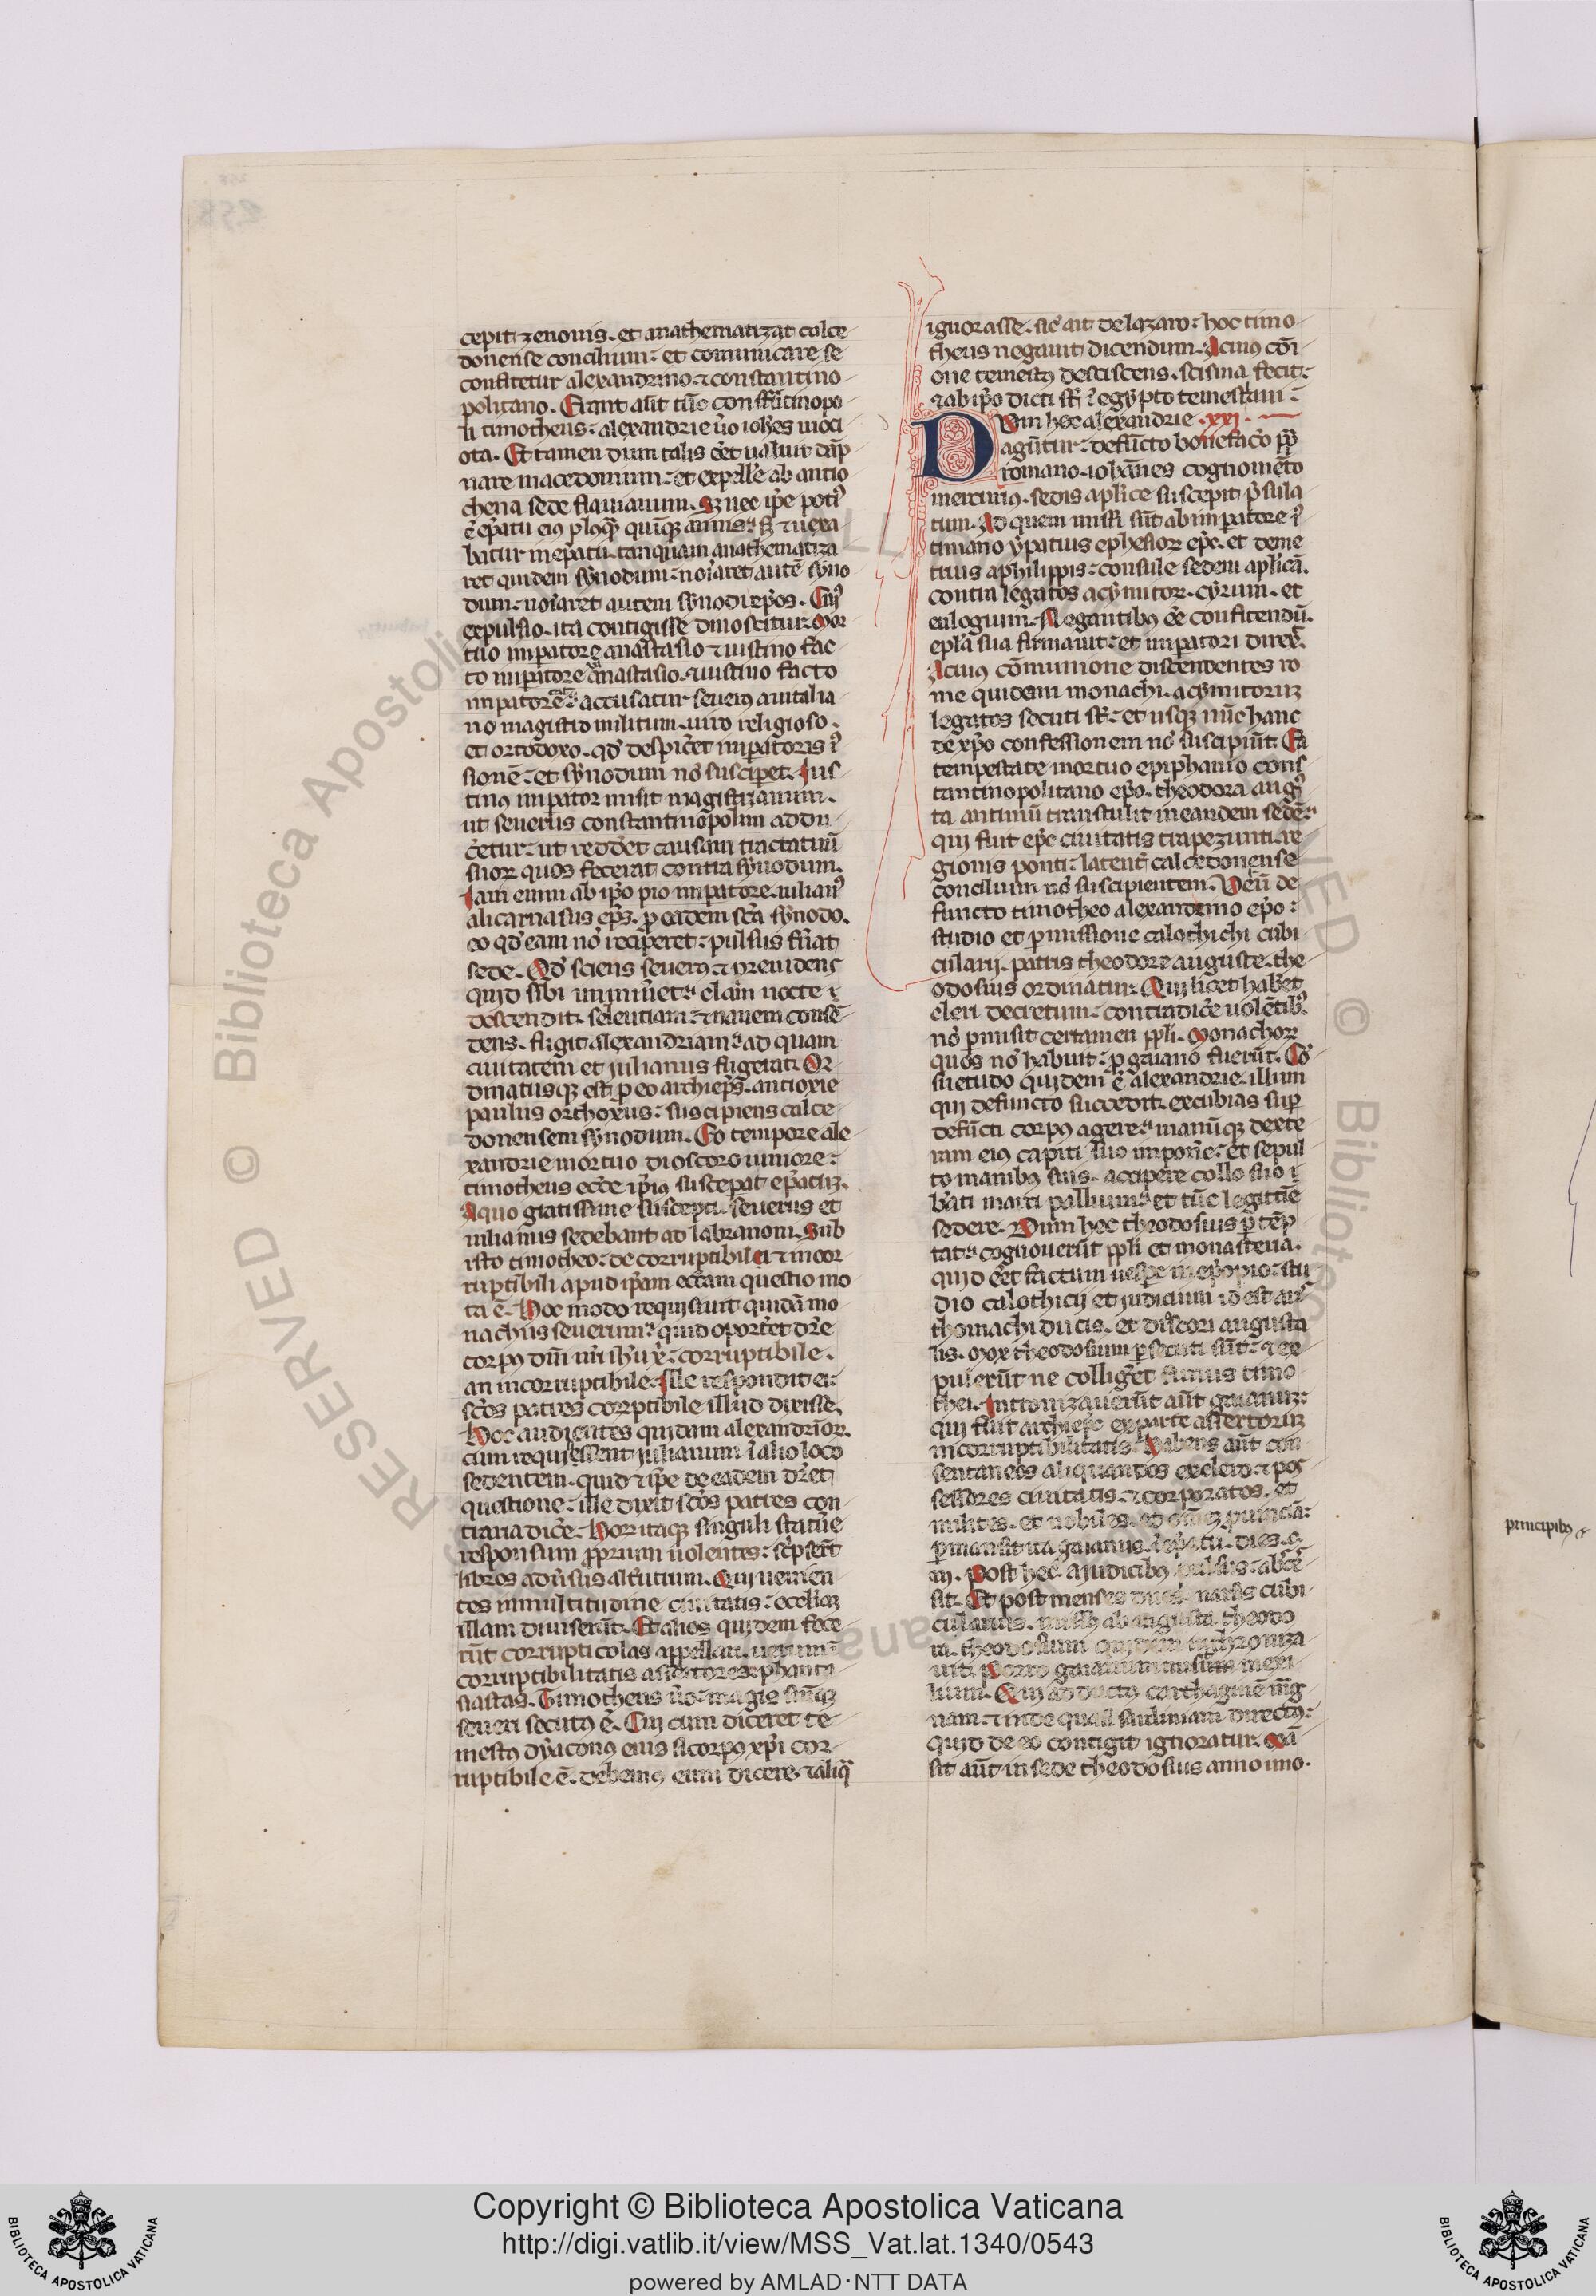 cepit zenonis. et anathematizat calce
donense concilium: et comunicare se
confitetur alexandrino. ⁊ constantino
politano. Erant aūt tūc constātinopo
li timotheus: alexandrie ũo ioħes
ota. Et tamen dum talis eēt ualuit dāp
nare macedonium: et expelle ab antio
chena sede flauianum. Sz nec ip̄e
batur in ep̄atu. tanquam anathematiza
ret quidem synodum: nō iaret autē syno
dum: nō iaret autem synodi ep̄os.
expulsio. ita contigisse dinoscitur. Mor
tuo imperatore anastasio ⁊ iustino fac
to imperatore anastasio. ⁊ iustino facto
impatore: accusatur seuerus a uitalia
no magistro militum. uiro religioso.
et ortodoxo. qd̄ despiceret imperatoris
sionē: et synodum nō susciperet. Jus
tinus imperator misit magistrianum.
ut seuerus constantinopolim addu
cetur: ut redderet causam tractatuū
suoꝝ quos fecerat contra synodum.
Jam enim ab ip̄o pio imperatore. iulian9
alicarnasus ep̄s. p eadem sc̄a synodo.
eo qd̄ eam nō reciperet: pulsus fuerat
sede. Qd̄ sciens seuerus ⁊ preuidens
quid sibi immineret. clam nocte
descendit. seleuciam: ⁊ nauem consē
dens. fugit alexandriam: ad quam
ciuitatem et iulianus fugerat. Or
dinatusq; est p eo archiep̄s. antioxie
paulus orthoxus: suscipiens calce
donensem synodum. Eo tempore ale
xandrie mortuo dioscoro iuniore:
timotheus ecc̄e ipius susceperat ep̄atuz.
A quo gratissime suscepti. seuerus et
iulianus sedebant ad labranoni. Sub
isto timotheo: de corruptibili ⁊ incor
ruptibili apud ip̄am ecc̄am questio mo
ta ē. Hoc modo requisiuit quidā mo
nachus seuerum: quid oporteret dr̄e
corpꝰ dn̄i nr̄i ih̄u x̄: corruptibile.
an incorruptibile. Ille respondit ei:
sc̄os patres corꝛptibile illud dixisse.
Hoc audientes quidam alexandrinoꝝ.
cum requisissent julianum ĩ alio loco
sedentem. quid ⁊ ip̄e de eadem dr̄et
questione: ille dixit sc̄os patres con
traria dice. Horꝝ itaq; singuli statue
responsum p̄prium uolentes: sc̄pserūt
libros aduersus alt̄utrum. Qui uenien
tes in multitudine ciuitatis: eccl̄iaz
illam diuiserūt. Et alios quidem fece
rūt corrupticolas appellari.
corruptibilitatis
siastas. Timotheus ũo: magis
seueri secutꝰ ē. Cui cum diceret te
mestꝰ dyaconꝰ eius si corpꝰ xp̄i cor
ruptibile ē. debemꝰ eum dicere ⁊ aliq̃
ignorasse. sic ait de lazaro: hoc timo
theus negauit dicendum. A ciuꝰ cōĩ
one temestꝰ desciscens. scisma fecit:
⁊ ab ip̄o dicti sūt ĩ egypto temestiani
Dum hec alexandrie .xxj.
agūtur: defūcto bonefacio pp̄
romano. iohannes cognomēto
mercuriꝰ. sedis aplice suscepit p̄sula
tum. Ad quem missi sūt ab imperatore iꝰ
tiniano ypatius ephesioꝝ ep̄c. et deme
trius a philippis: consule sedem aplicā.
contra legatos acymitoꝝ. cyrum. et
eulogium. Negantibꝰ cē confitendū.
epl̄a sua firmauit: et imperatori direx̄.
A ciuꝰ cōmunione discendentes ro
me quidem monachi. acymitoruz
legatos secuti sūt: et usq; nūc hanc
de xp̄o confessionem nō suscipiūt. Ea
tempestate mortuo epiphanio cons
tantinopolitano ep̄o. theodora augꝰ
ta antimū transtulit in eandem sedē:
qui fuit ep̄c ciuitatis trapezunti. re
gionis ponti: latent̄ calcedonense
concilium nō suscipientem. Verū de
functo timotheo alexandrino ep̄o:
studio et p̄missione calothichi cubi
cularij. patris theodore auguste. the
odosius ordinatur. Qui licet haberet
cleri decretum: contradice uolētibꝰ.
nō p̄misit certamen ppli. Monachoꝝ
quos nō habuit: p gaiano fuerūt. Cō
suetudo quidem ē alexandrie. illum
qui defuncto succedit. excubias sup
defūcti corpꝰ agere: manūq; dexte
ram eius capiti suo imponē: et sepul
to manibꝰ suis. accipere collo suo
bāti marci pallium: et tūc legittīe
sedere. Dum hec theodosius ptēp
tat: cognouerūt ppli et monasteria.
quid eēt factum uespe in ep̄opio: stu
dio calothicij et judicium id est aris
thomachi ducis. et discori augusta
lis. Mox theodosium p̄secuti sūt: ⁊ ex
pulerūt ne colligeret funus timo
thei. Intronizauerūt aūt gaianuz:
qui fuit archiep̄c ex parte assertoruz
incorruptibilitatis. Habens aūt con
sentaneos aliquandos ex clero. ⁊ pos
sessores ciuitatis. ⁊ corporatos. et
milites. et nobiles. et omez puinciā:
p̄mansit ita gaianus. ĩ ep̄atu. dies. c
iij. Post hec a judicibꝰ pulsus: abscē
sit. Et post menses duos. narsis cubi
cularius. missus ab augusta theodo
ra. theodosium quidem inthroniza
uit. Porro gaianum misit in exi
lium. Qui adductꝰ carthaginē
nam. ⁊ inde quasi sardiniam directꝰ:
quid de eo contigit ignoratur.
sit aūt in sede theodosius anno uno.
principibꝰ
RESERVED © Biblioteca Apostolica
Copyright © Biblioteca Apostolica Vaticana
http://digi.vatlib.it/view/MSS_Vat.lat.1340/0543
powered by AMLAD·NTT DATA
BIBLIOTECA APOSTOLICA VATICANA
BIBLIOTECA APOSTOLICA VATICANA